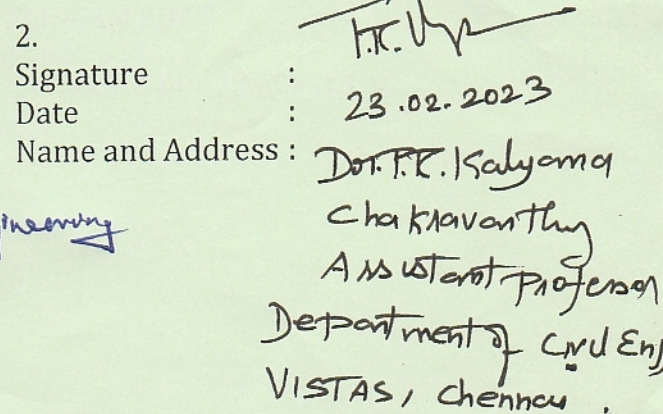 2.
Signature :
Date : 23.02.2023
Name and Address : Dr. P.K. Kalyana
Chakravarthy
Assistant Professor
Department of Civil Eng
VISTAS, Chennai.